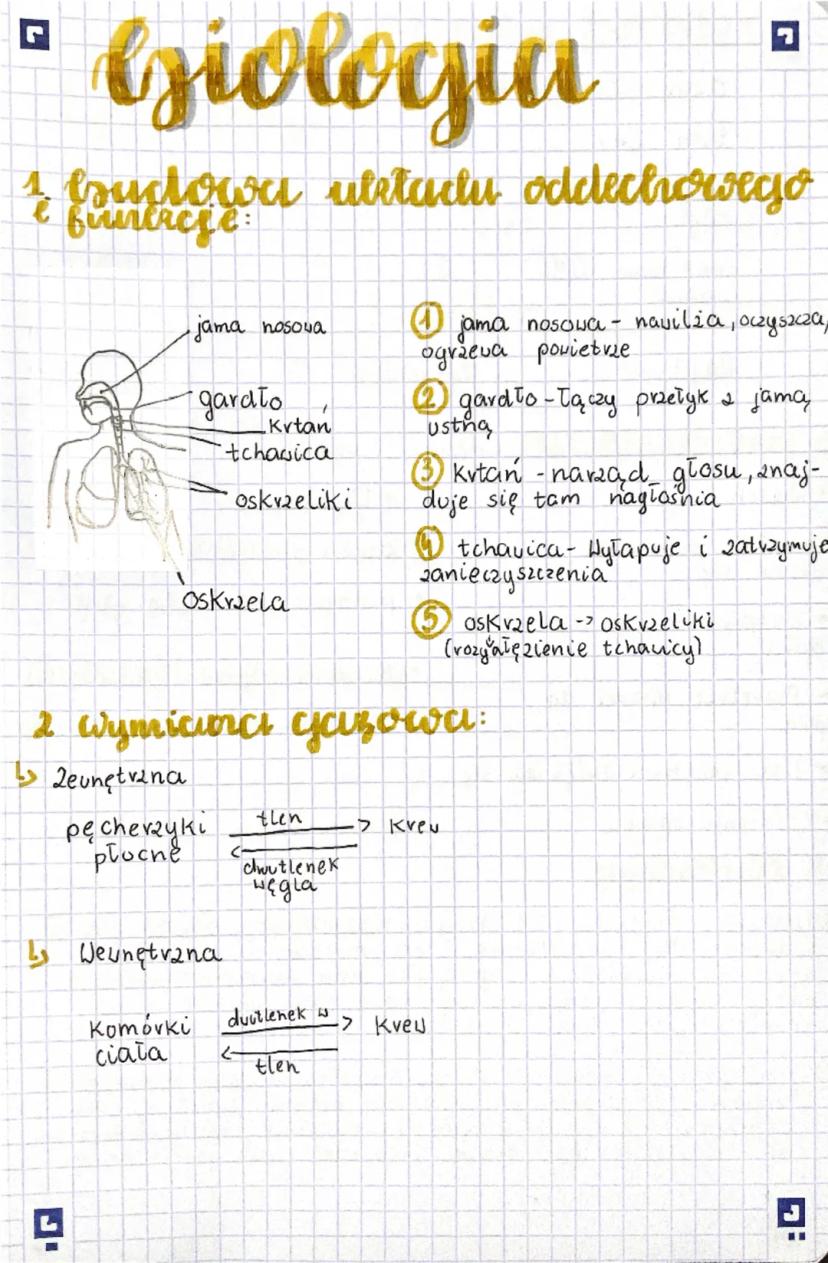 Biologia
1. Budowa układu oddechowego
i funkcje:
jama nosowa
gardło
krtań
tchawica
oskrzeliki
oskrzela
① jama nosowa - nawilża, oczyszcza,
ogrzewa powietrze
② gardło - łączy przełyk z jamą
ustną
③ krtań - narząd głosu, znaj-
duje się tam nagłośnia
④ tchawica - Wyłapuje i zatrzymuje
zanieczyszczenia
⑤ oskrzela -> oskrzeliki
(rozgałęzienie tchawicy)
2 Wymiana gazowa:
↳ Zewnętrzna
pęcherzyki
płucne
tlen
dwutlenek
węgla
krew
↳ Wewnętrzna
komórki
ciała
dwutlenek w
tlen
krew